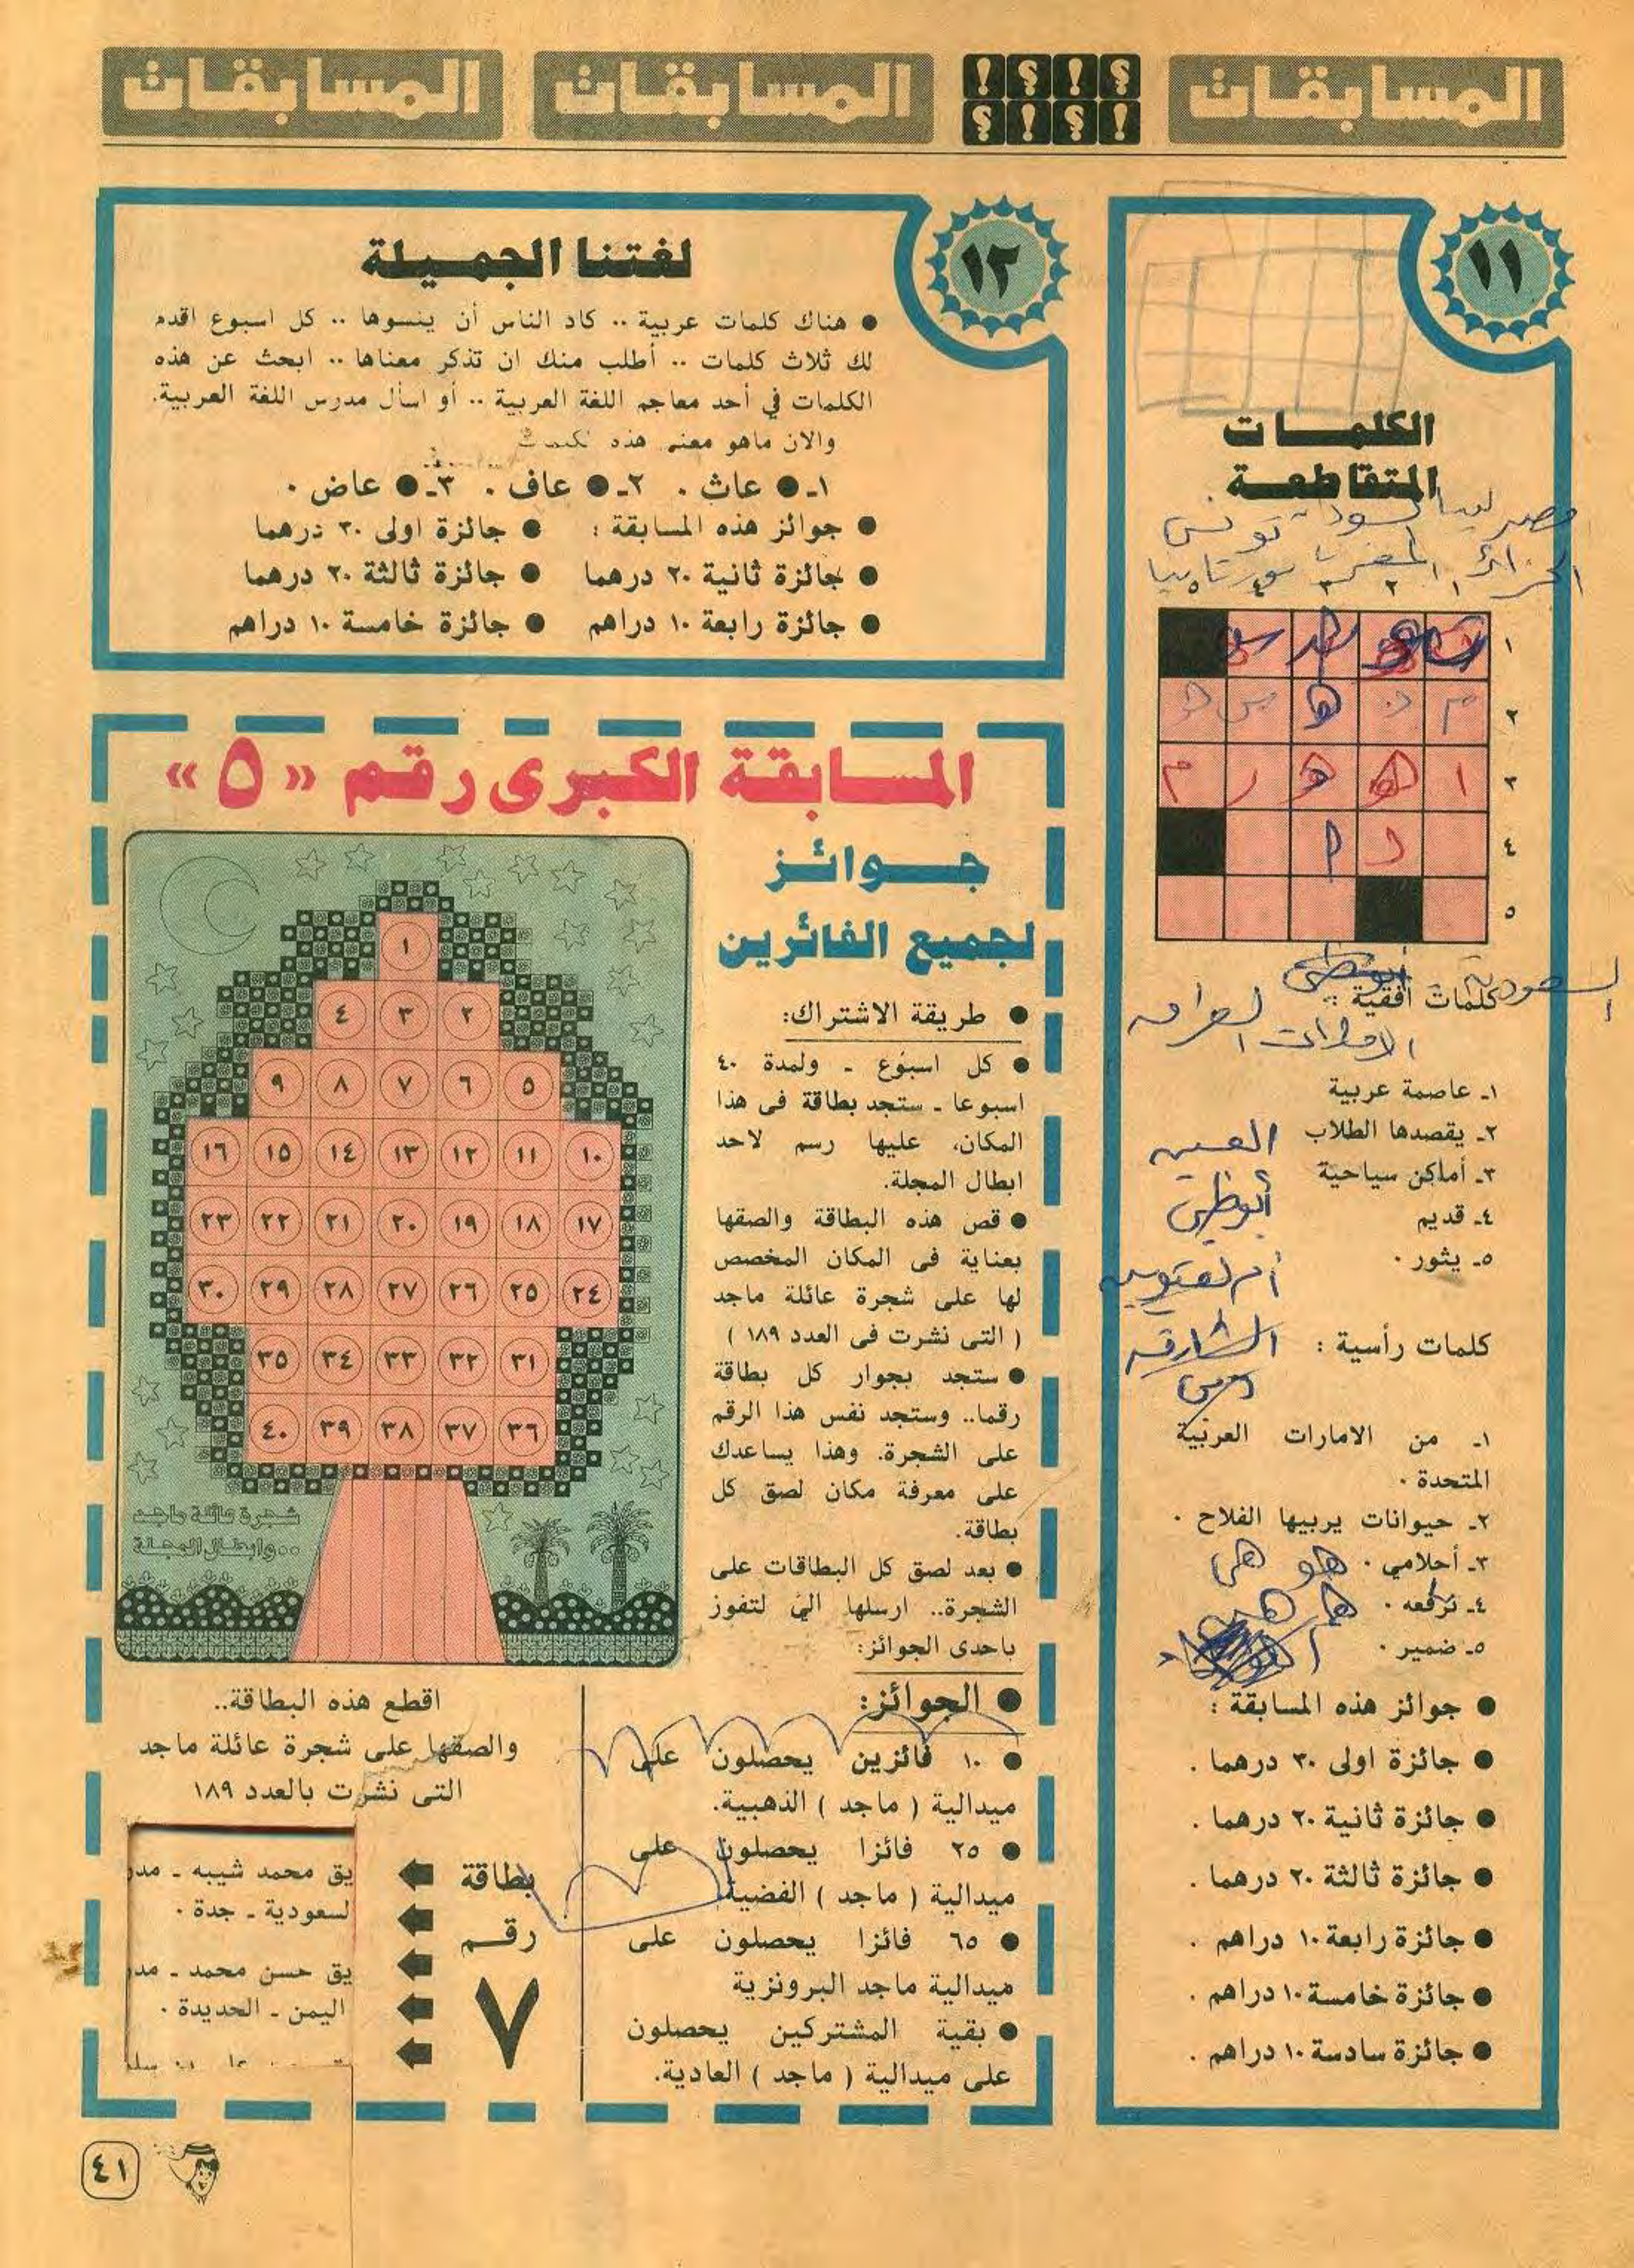 المسابقات
المسابقات
المسابقات
١١
الكلمـــات
المتقاطعـة
مصر ليبيا تونس
٥ ٤ ٣ ٢ ١
١
٢
٣
٤
٥
كلمات افقية :
١ـ عاصمة عربية
٢ـ يقصدها الطلاب
٣ـ أماكن سياحية
٤ـ قديم
٥ـ يثور ٠
العين
أبوظبي
الشارقه
دبي
كلمات رأسية :
١ـ من الامارات العربية
المتحدة ٠
٢ـ حيوانات يربيها الفلاح ٠
٣ـ أحلامي ٠ هو هي
٤ـ نرفعه ٠
٥ـ ضمير ٠
● جوائز هذه المسابقة :
● جائزة اولى ٣٠ درهما .
● جائزة ثانية ٢٠ درهما .
● جائزة ثالثة ٢٠ درهما .
● جائزة رابعة ١٠ دراهم .
● جائزة خامسة ١٠ دراهم .
● جائزة سادسة ١٠ دراهم .
١٢
لغتنا الجميلة
● هناك كلمات عربية .. كاد الناس أن ينسوها .. كل اسبوع اقدم
لك ثلاث كلمات .. أطلب منك ان تذكر معناها .. ابحث عن هذه
الكلمات في أحد معاجم اللغة العربية .. أو اسأل مدرس اللغة العربية.
والان ماهو معنى هذه
١ـ ● عاث . ٢ـ ● عاف . ٣ـ ● عاض .
● جوائز هذه المسابقة : ● جائزة اولى ٣٠ درهما
● جائزة ثانية ٢٠ درهما ● جائزة ثالثة ٢٠ درهما
● جائزة رابعة ١٠ دراهم ● جائزة خامسة ١٠ دراهم
المسابقة الكبرى رقم «٥»
جــوائــز
لجميع الفائزين
● طريقة الاشتراك:
● كل اسبوع ـ ولمدة ٤٠
اسبوعا ـ ستجد بطاقة فى هذا
المكان، عليها رسم لاحد
ابطال المجلة.
● قص هذه البطاقة والصقها
بعناية فى المكان المخصص
لها على شجرة عائلة ماجد
( التى نشرت فى العدد ١٨٩ )
● ستجد بجوار كل بطاقة
رقما.. وستجد نفس هذا الرقم
على الشجرة. وهذا يساعدك
على معرفة مكان لصق كل
بطاقة.
● بعد لصق كل البطاقات على
الشجرة.. ارسلها الي لتفوز
باحدى الجوائز:
● الجوائز:
● ١٠ فائزين يحصلون على
ميدالية ( ماجد ) الذهبية.
● ٢٥ فائزا يحصلون على
ميدالية ( ماجد ) الفضية
● ٦٥ فائزا يحصلون على
ميدالية ماجد البرونزية
● بقية المشتركين يحصلون
على ميدالية ( ماجد ) العادية.
١
٢ ٣ ٤
٥ ٦ ٧ ٨ ٩
١٠ ١١ ١٢ ١٣ ١٤ ١٥ ١٦
١٧ ١٨ ١٩ ٢٠ ٢١ ٢٢ ٢٣
٢٤ ٢٥ ٢٦ ٢٧ ٢٨ ٢٩ ٣٠
٣١ ٣٢ ٣٣ ٣٤ ٣٥
٣٦ ٣٧ ٣٨ ٣٩ ٤٠
شجرة عائلة ماجد
..وابطال المجلة
اقطع هذه البطاقة..
والصقها على شجرة عائلة ماجد
التى نشرت بالعدد ١٨٩
بطاقة
رقم
٧
يق محمد شيبه ـ مدر
لسعودية ـ جدة ٠
يق حسن محمد ـ مدر
اليمن ـ الحديدة ٠
٤١